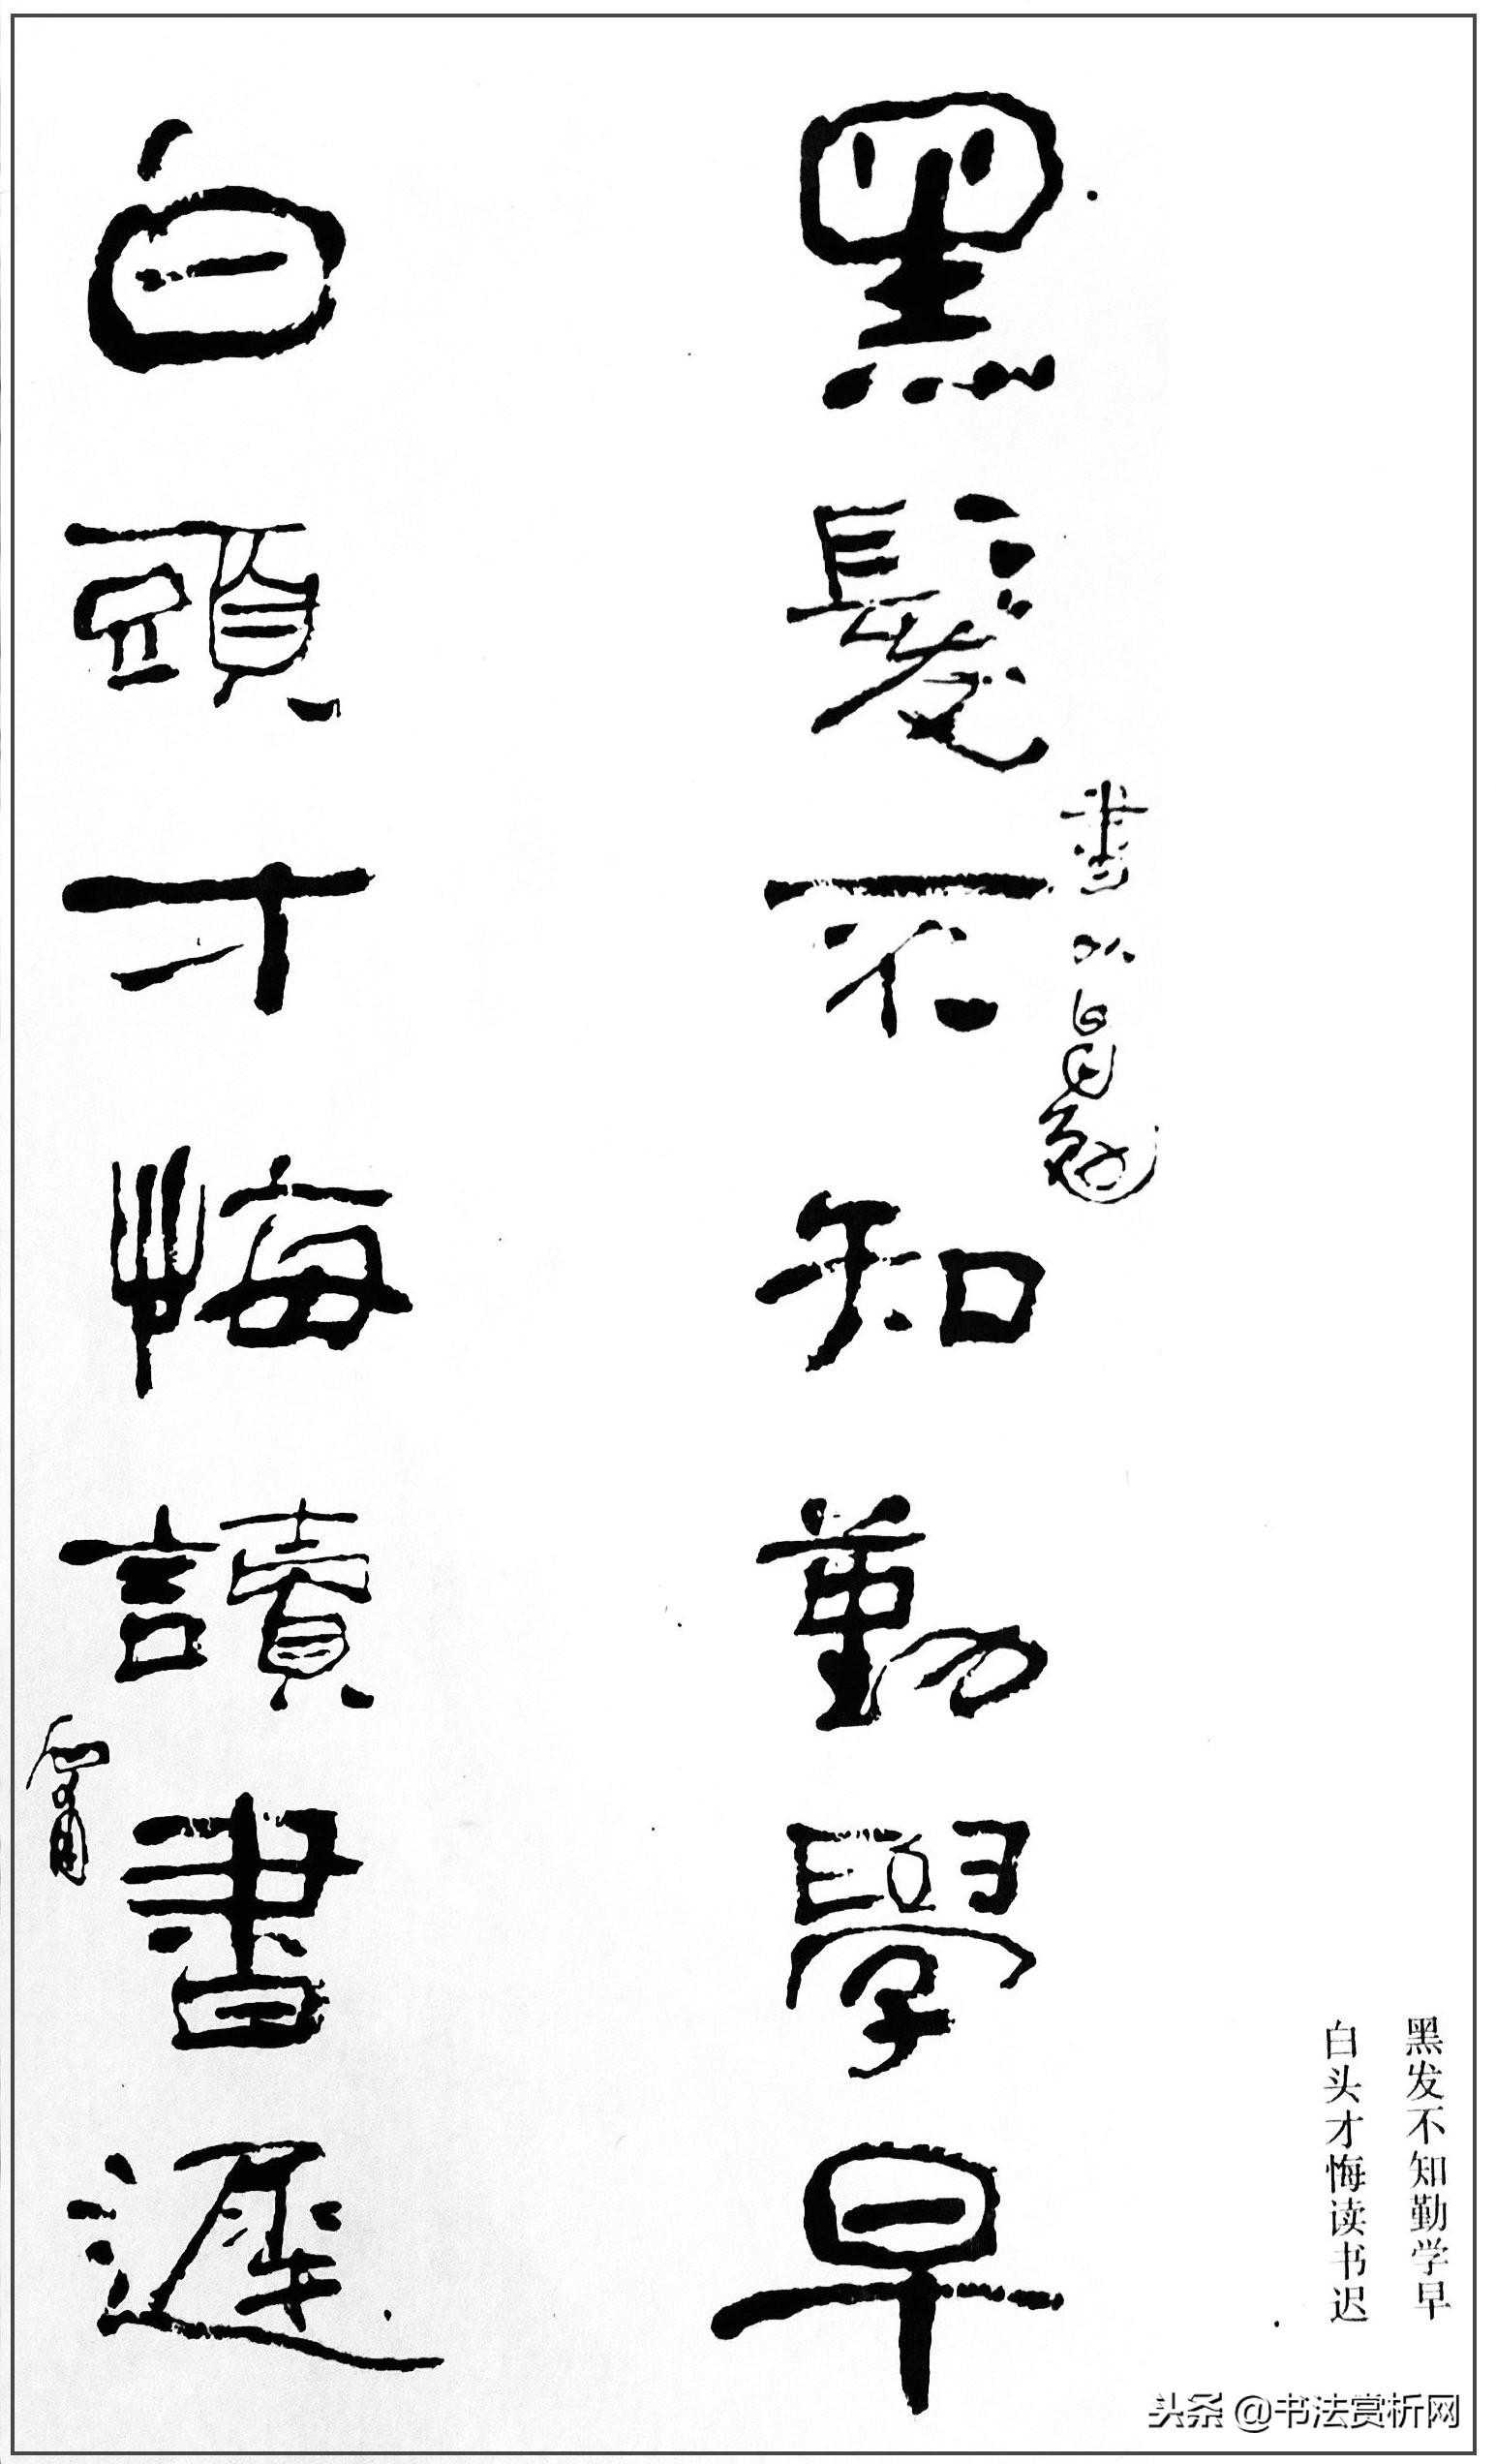 黑髮不知勤學早
書以自勉
白頭才悔讀書遲
黑发不知勤学早
白头才悔读书迟
头条 @书法赏析网